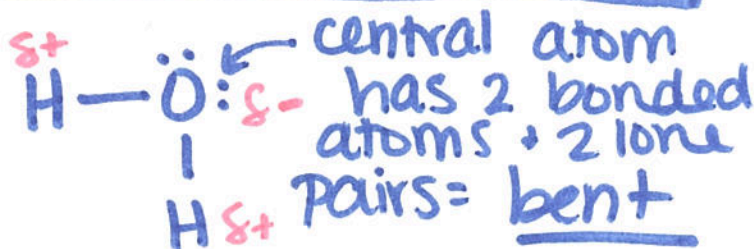 δ+ central atom
H — Ö: δ- has 2 bonded
atoms + 2 lone
H δ+ pairs = bent